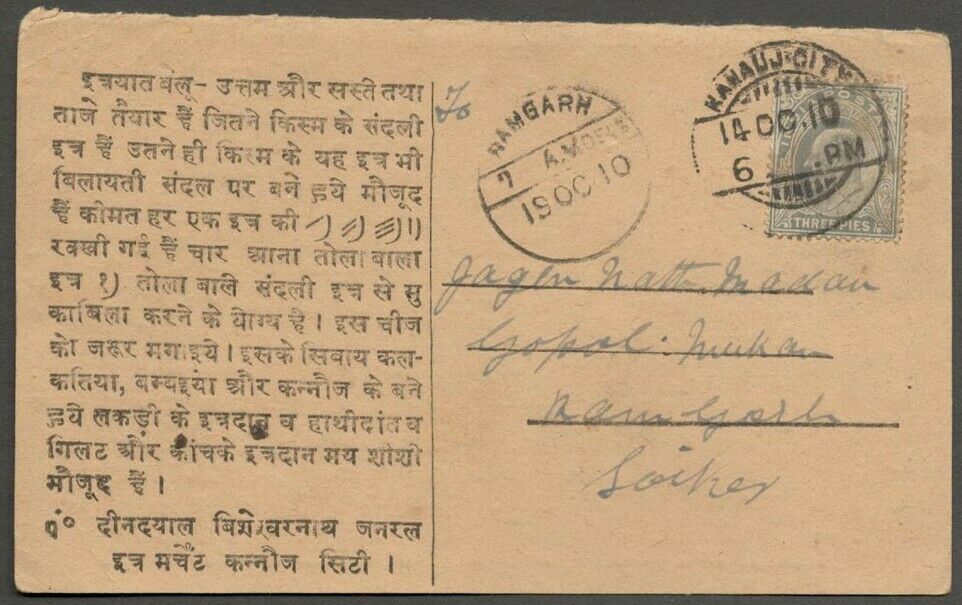 इत्रयात बलू- उत्तम और सस्ते तथा
ताजे तैयार हैं जितने किस्म के संदली
इत्र हैं उतने ही किस्म के यह इत्र भी
बिलायती संदल पर बने हुये मौजूद
हैं कीमत हर एक इत्र की
रक्खी गई हैं चार आना तोला बाला
इत्र १) तोला बाले संदली इत्र से मु
काबिला करने के योग्य है। इस चीज
को जरूर मगाइये। इसके सिवाय कल-
कतिया, बम्बइया और कन्नौज के बने
हुये लकड़ी के इत्रदान व हाथीदांत व
गिलट और कांचके इत्रदान मय शीशी
मौजूद हैं।
पं० दीनदयाल बिशेश्वरनाथ जनरल
इत्र मर्चेंट कन्नौज सिटी।
To
RAMGARH
7 A.M DELY
19 OC 10
KANAUJ-CITY
14 OC.10
6 PM
POSTA
THREE PIES
Jagen Nath Madan
Gopal Mukan
RamGarh
Soiker